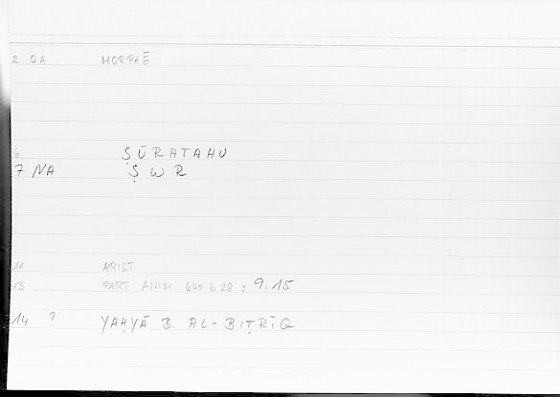 2 QA MORPHĒ
6 ṢŪRATAHU
7 NA ṢWR
11 ARIST
13 PART ANIM 640 b 28 : 9.15
14 ? YAḤYĀ B. AL-BIṬRĪQ